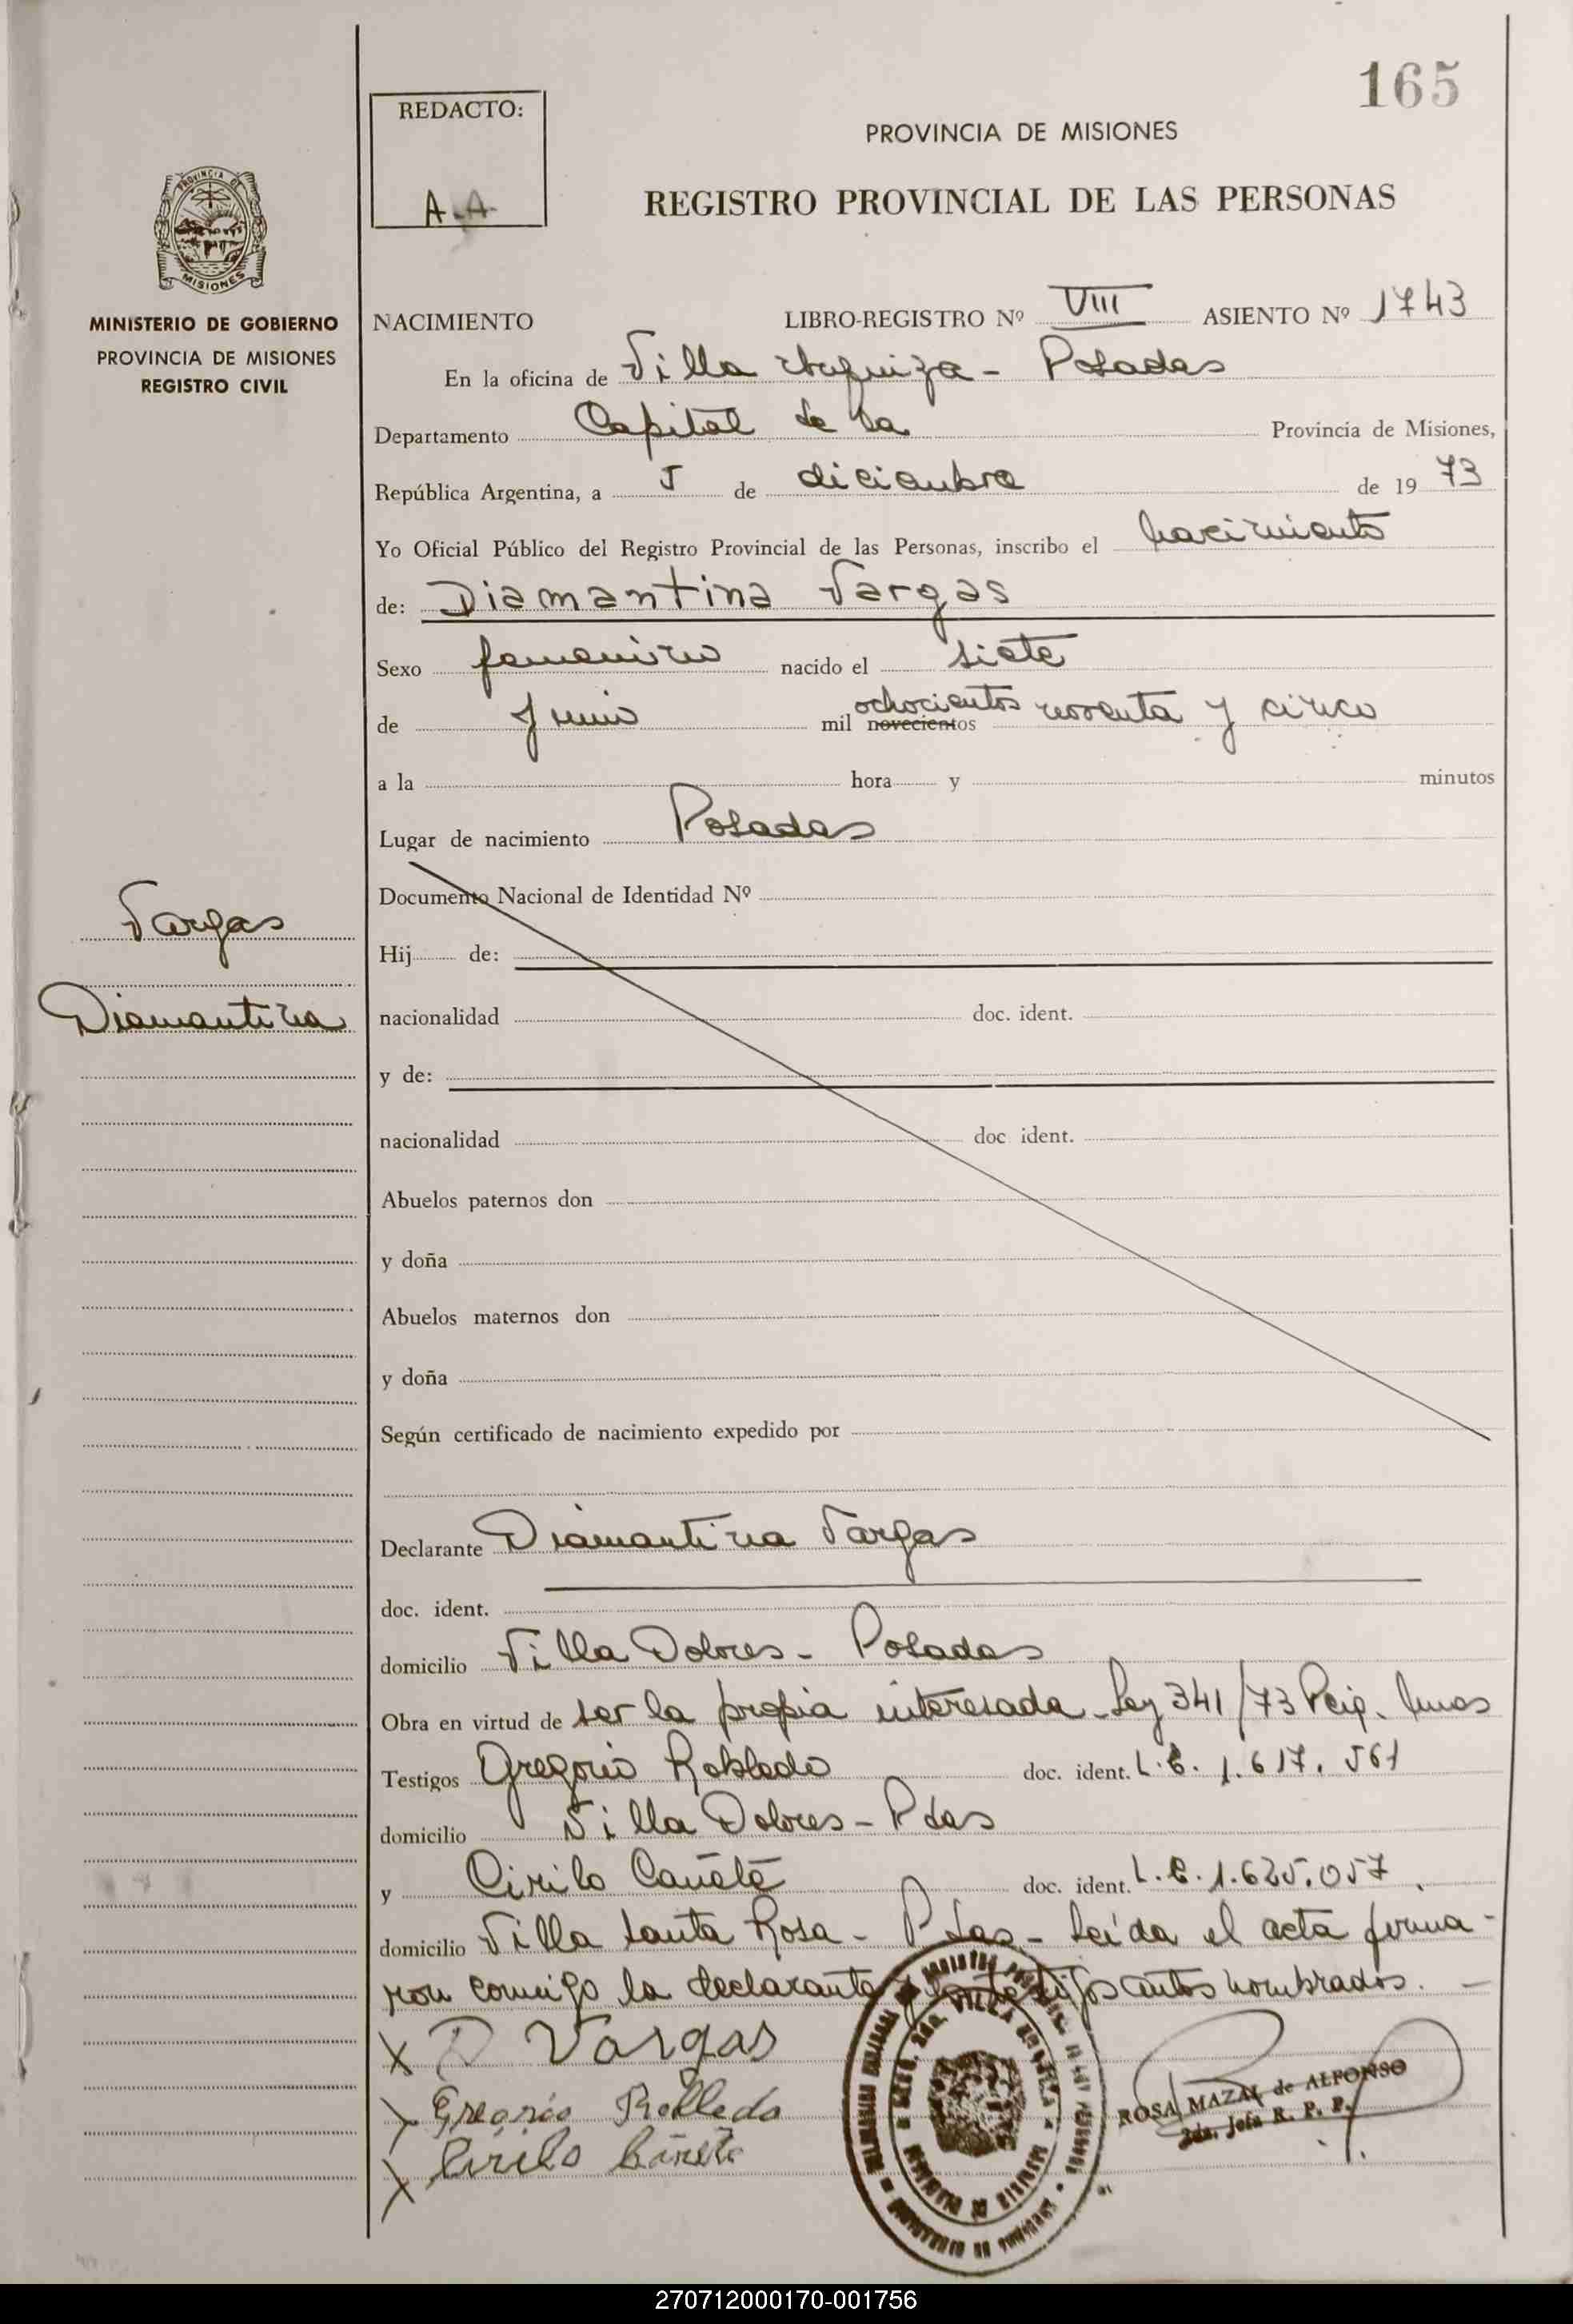 165
REDACTO:
A.A
PROVINCIA DE MISIONES
REGISTRO PROVINCIAL DE LAS PERSONAS
PROVINCIA DE
MISIONES
MINISTERIO DE GOBIERNO
PROVINCIA DE MISIONES
REGISTRO CIVIL
NACIMIENTO LIBRO-REGISTRO Nº VIII ASIENTO Nº 1743
En la oficina de Villa Urquiza - Posadas
Departamento Capital de la Provincia de Misiones,
República Argentina, a 5 de diciembre de 1973
Yo Oficial Público del Registro Provincial de las Personas, inscribo el nacimiento
de: Diamantina Vargas
Sexo femenino nacido el siete
de Junio mil novecientos ochocientos noventa y cinco
a la hora y minutos
Lugar de nacimiento Posadas
Documento Nacional de Identidad Nº
Vargas
Hij de:
Diamantina
nacionalidad doc. ident.
y de:
nacionalidad doc ident.
Abuelos paternos don
y doña
Abuelos maternos don
y doña
Según certificado de nacimiento expedido por
Declarante Diamantina Vargas
doc. ident.
domicilio Villa Dolores - Posadas
Obra en virtud de ser la propia interesada - Ley 341/73
Testigos Gregorio Robledo doc. ident. L.E. 1.617.561
domicilio Villa Dolores - Pdas
y Cirilo Cañete doc. ident. L.E. 1.625.057.
domicilio Villa Santa Rosa - Pdas - Leída el acta firma-
ron conmigo la declarante y los testigos antes nombrados. -
X D Vargas
X Gregorio Robledo
X Cirilo Cañete
ROSA MAZAL de ALFONSO
2da. Jefa R. P. P.
270712000170-001756